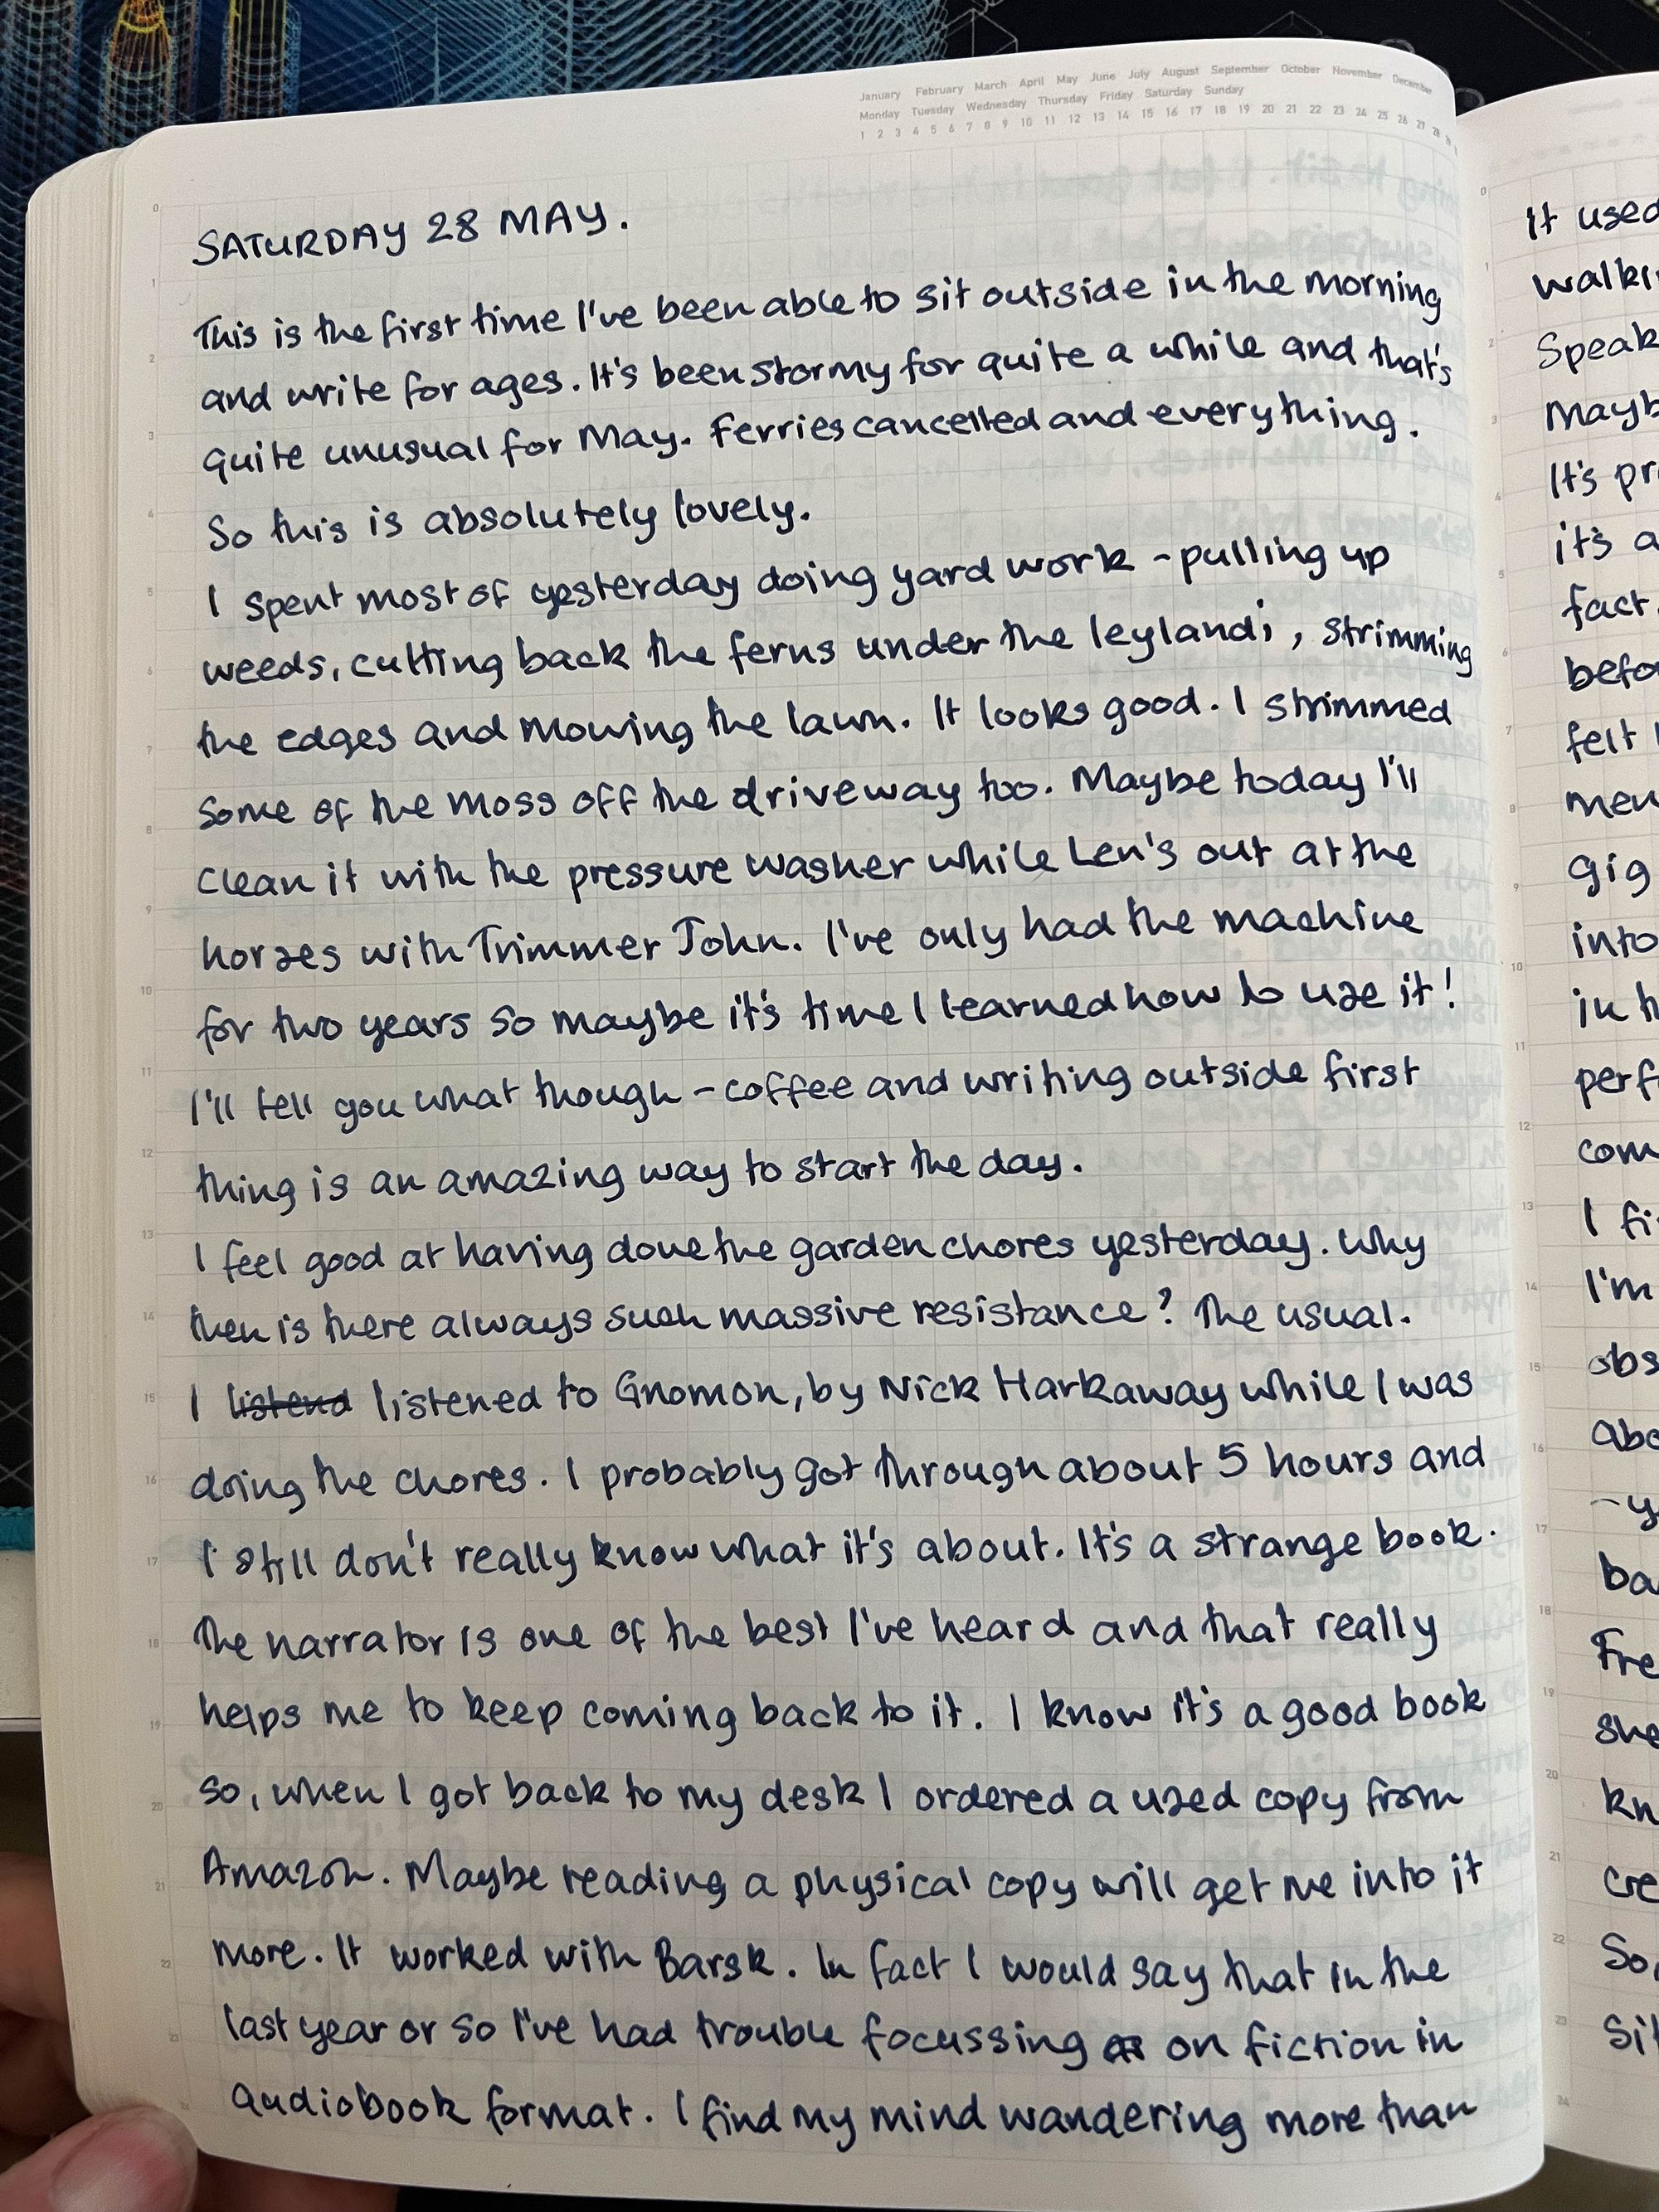 January February March April May June July August September October November December
Monday Tuesday Wednesday Thursday Friday Saturday Sunday
1 2 3 4 5 6 7 8 9 10 11 12 13 14 15 16 17 18 19 20 21 22 23 24 25 26 27 28
SATURDAY 28 MAY.
This is the first time I've been able to sit outside in the morning
and write for ages. It's been stormy for quite a while and that's
quite unusual for May. Ferries cancelled and everything.
So this is absolutely lovely.
I spent most of yesterday doing yard work - pulling up
weeds, cutting back the ferns under the leylandi, strimming
the edges and mowing the lawn. It looks good. I strimmed
some of the moss off the driveway too. Maybe today I'll
clean it with the pressure washer while Len's out at the
horses with Trimmer John. I've only had the machine
for two years so maybe it's time I learned how to use it!
I'll tell you what though - coffee and writing outside first
thing is an amazing way to start the day.
I feel good at having done the garden chores yesterday. Why
then is there always such massive resistance? The usual.
I listend listened to Gnomon, by Nick Harkaway while I was
doing the chores. I probably got through about 5 hours and
I still don't really know what it's about. It's a strange book.
The narrator is one of the best I've heard and that really
helps me to keep coming back to it. I know it's a good book
so, when I got back to my desk I ordered a used copy from
Amazon. Maybe reading a physical copy will get me into it
more. It worked with Barsk. In fact I would say that in the
last year or so I've had trouble focussing on fiction in
audiobook format. I find my mind wandering more than
It used
walki
Speak
Mayb
It's pr
it's a
fact.
befo
felt
men
gig
into
in h
perf
com
I fi
I'm
obs
abo
- y
ba
Fre
she
kn
cre
So,
sit